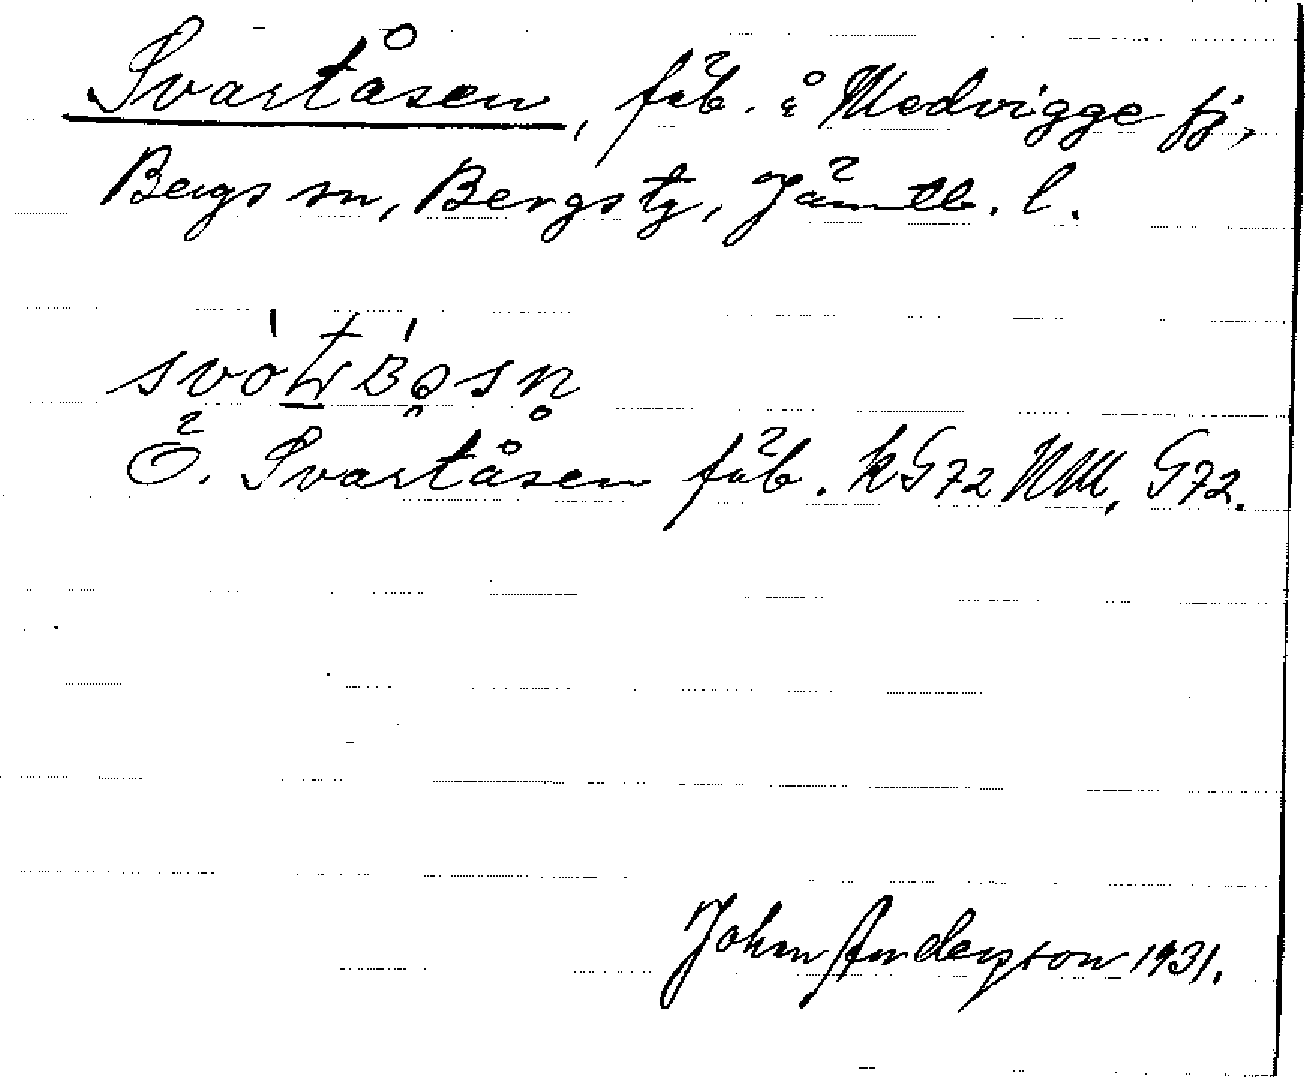 Svartåsen, fäb. å Medvigge fj,
Bergs sn, Bergs tg, Jämtl. l.
Ö. Svartåsen fäb. k G72 NM, G72.
John Anderson 1931.